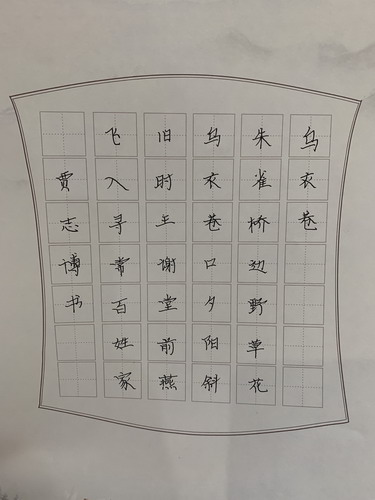 乌衣巷
朱雀桥边野草花
乌衣巷口夕阳斜
旧时王谢堂前燕
飞入寻常百姓家
贾志博书